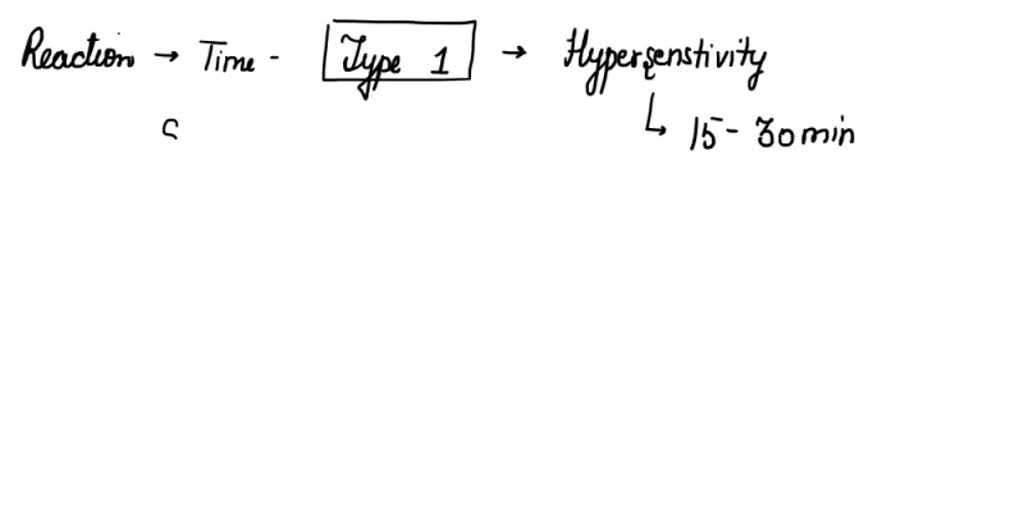 Reaction → Time - Type 1 → Hypersenstivity
↳ 15 - 30 min